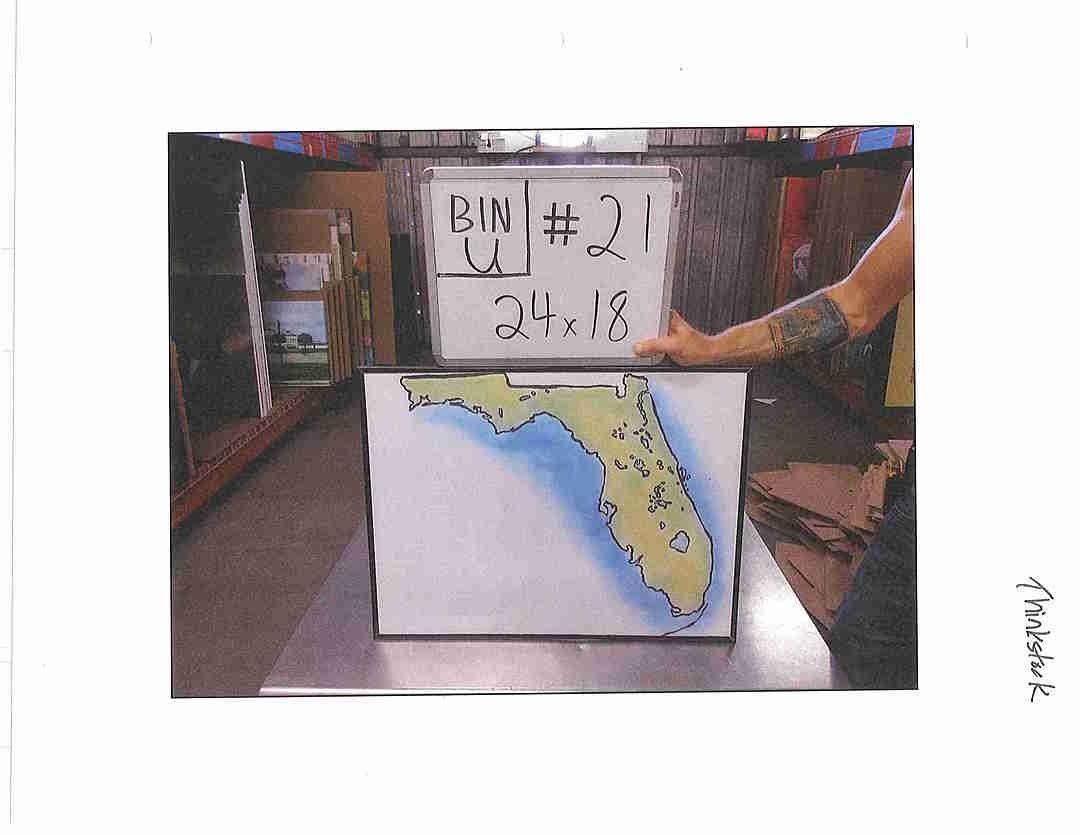 BIN
U
#21
24x18
Thinkstock